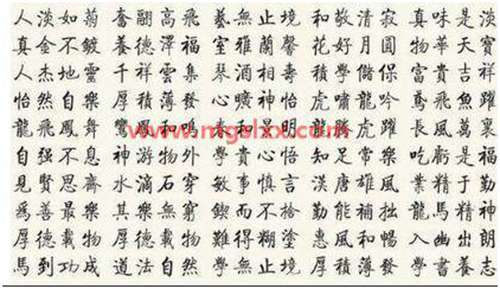 人淡如菊 奮翮高飛 藝無止境 和敬清寂 真味是淡
真金不鍍 養德澤福 室雅蘭馨 花好月圓 物華天寶
人杰地靈 千祥雲集 琴酒相壽 積學儲保 富貴吉祥
怡然自樂 厚積薄發 心曠神怡 虎嘯龍吟 鳶飛魚躍
龍飛鳳舞 鸞鳳和鳴 明 龍騰虎躍 長風萬裏
www.mgslxx.com
自强不息 神游物外 學貴心悟 知足常樂 吃虧是福
見賢思齊 水滴石穿 敏事慎言 漢唐雄風 業精于勤
爲善最樂 其樂無窮 鍥而不捨 勤能補拙 龍馬精神
厚德載物 厚德載物 難得糊塗 惠風和暢 入幽出朗
馬到功成 道法自然 學無止境 厚積薄發 學書養志